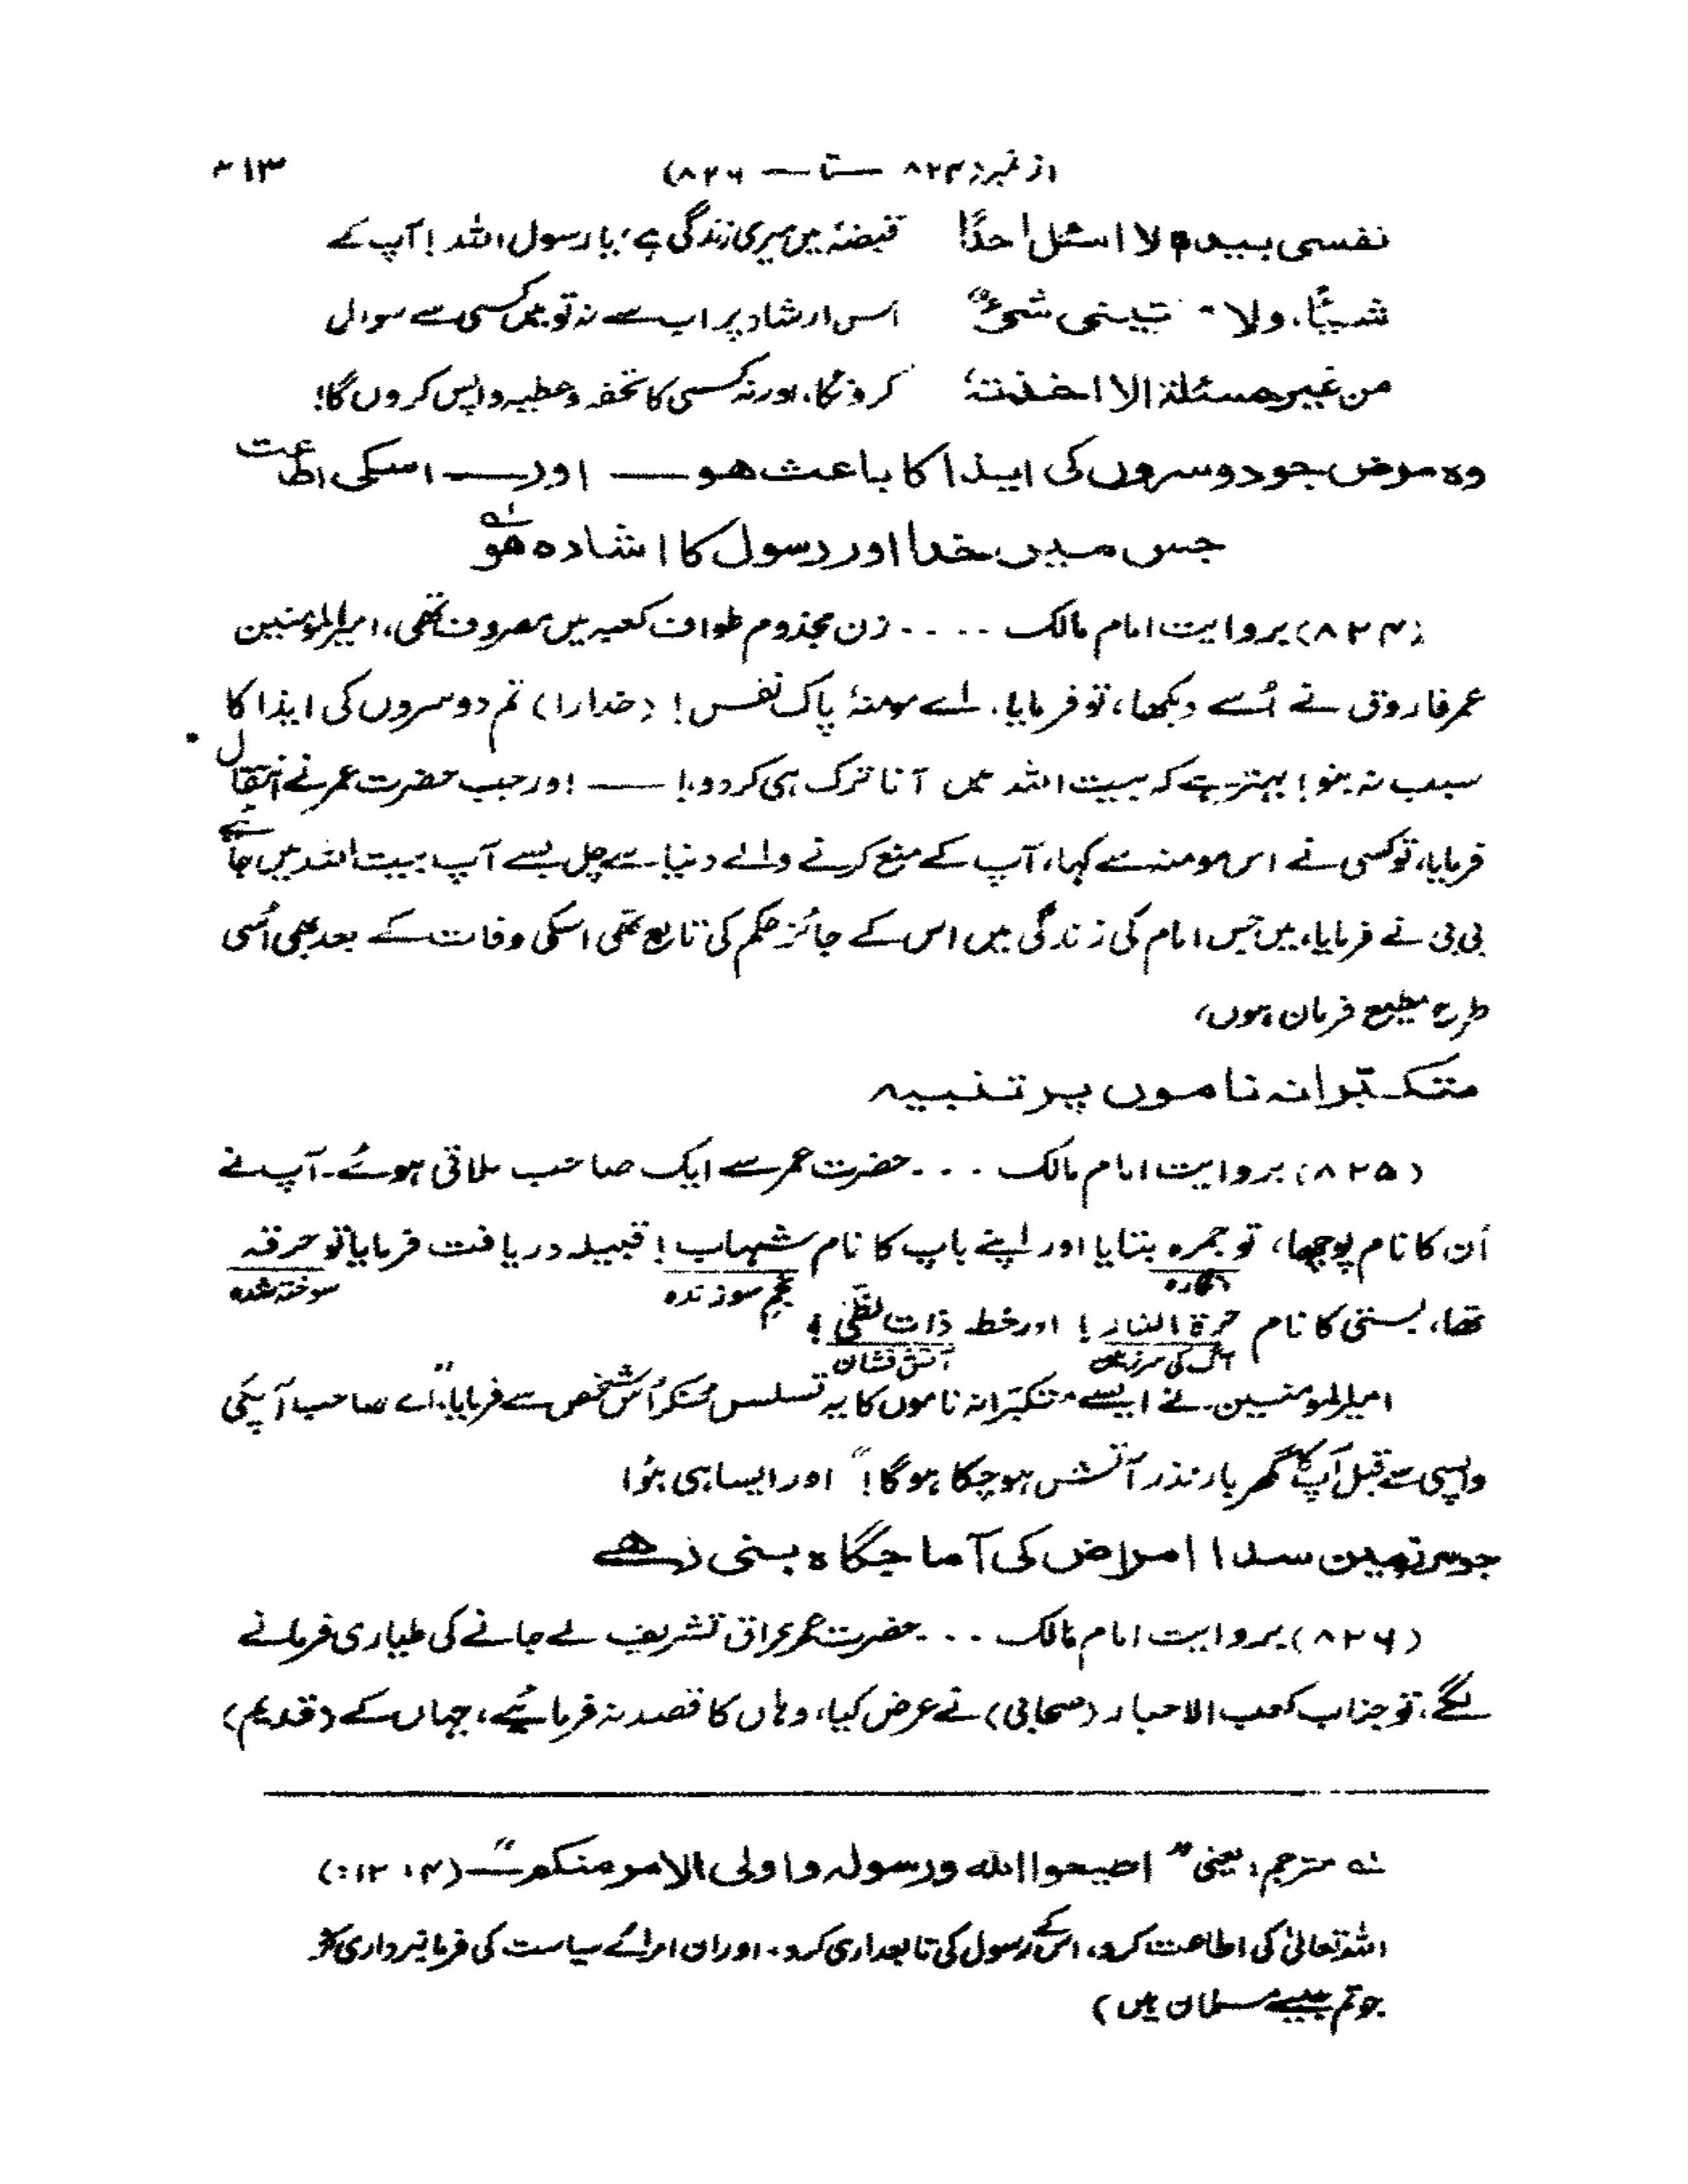 از نمبر (۸۲۴ — تا — ۸۲۶) ۳۱۳
نفسی بیدہ لا اسئل احدًا قبضہٴ میں میری زندگی ہے، یا رسول اللہ! آپ کے
شیئًا، ولا یاتینی شیءٌ اس ارشاد پر اب سے نہ تو میں کسی سے سوال
من غیر مسئلة الا اخذتہٗ کروں گا، اور نہ کسی کا تحفہ و عطیہ واپس کروں گا!
وہ مرض جو دوسروں کی ایذا کا باعث ھو — اور — اسکی اطاعت
جس میں خدا اور رسول کا اشارہ ھو لہ
(۸۲۴) بروایت امام مالک .... زن مجذوم طواف کعبہ میں مصروف تھی، امیرالمومنین
عمر فاروق نے اُسے دیکھا، تو فرمایا، اے مومنہٴ پاک نفس! (خدارا) تم دوسروں کی ایذا کا
سبب نہ بنو! بہتر ہے کہ بیت اللہ میں آنا ترک ہی کر دو! — اور جب حضرت عمر نے انتقال
فرمایا، تو کسی نے اس مومنہ سے کہا، آپ کے منع کرنے والے دنیا سے چل بسے آپ بیت اللہ میں جائیے
بی بی نے فرمایا، میں جس امام کی زندگی میں اس کے جائز حکم کی تابع تھی اسکی وفات کے بعد بھی اُسی
طرح مطیع فرمان ہوں،
متکبّرانہ ناموں پر تنبیہ
(۸۲۵) بروایت امام مالک ... حضرت عمر سے ایک صاحب ملاقی ہوئے۔ آپ نے
اُن کا نام پوچھا، تو جمرہ بتایا اور اپنے باپ کا نام شہاب! قبیلہ دریافت فرمایا تو حرقہ
انگارہ نجم سوزندہ سوختہ شدہ
تھا، بستی کا نام حرة النار! اور خطہ ذات لظٰی!
آگ کی سرزمین آتش فشان
امیرالمومنین نے ایسے متکبّرانہ ناموں کا یہ تسلسل سُنکر اُس شخص سے فرمایا "اے صاحب! آپکی
واپسی سے قبل آپ کا گھر بار نذر آتش ہو چکا ہو گا!" اور ایسا ہی ہوُا
جو سرزمین سدا امراض کی آماجگاہ بنی رھے
(۸۲۶) بروایت امام مالک ... حضرت عمر عراق تشریف لے جانے کی طیاری فرمانے
لگے، تو جناب کعب الاحبار (صحابی) نے عرض کیا، وہاں کا قصد نہ فرمائیے، جہاں کے (قدیم)
لہ مترجم، یعنی "اطیعوا اللہ ورسولہ واولی الامر منکم" (
اللہ تعالیٰ کی اطاعت کرو، اس کے رسول کی تابعداری کرو۔ اور ان امرائے سیاست کی فرمانبرداری کرو
جو تم جیسے مسلمان ہیں)